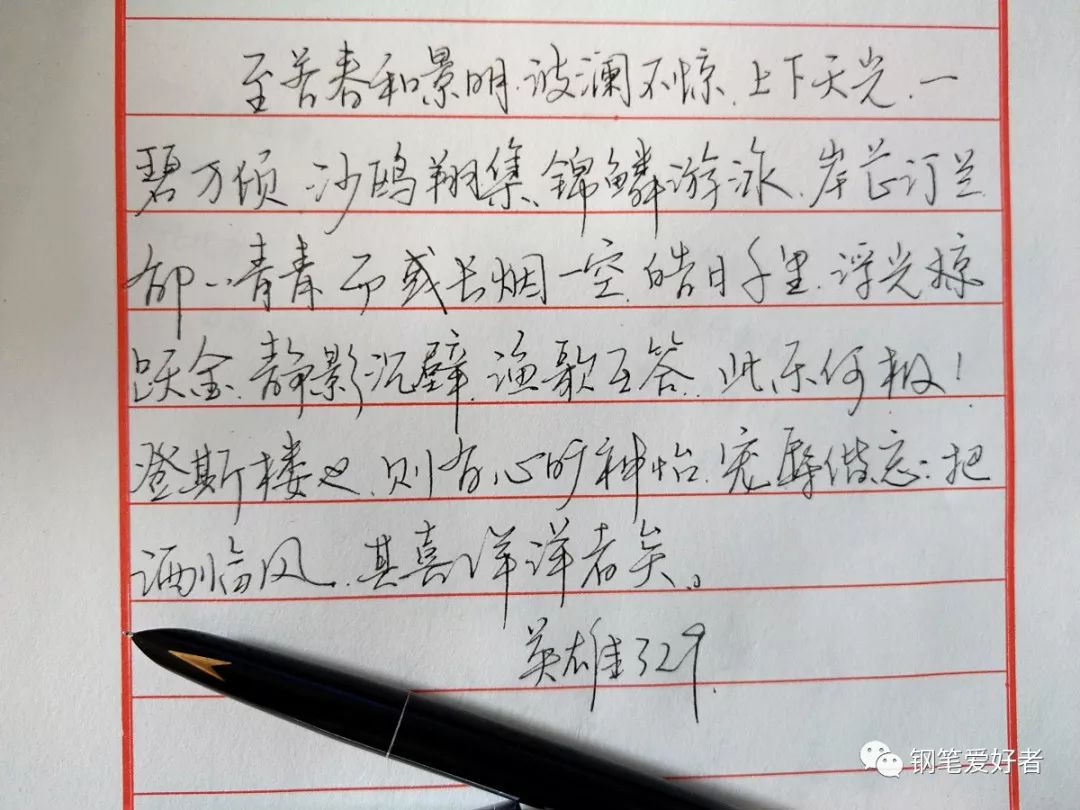 至若春和景明.波澜不惊.上下天光.一
碧万顷.沙鸥翔集.锦鳞游泳.岸芷汀兰
郁々青青.而或长烟一空.皓月千里.浮光掠
跃金.静影沉璧.渔歌互答.此乐何极！
登斯楼也.则有心旷神怡.宠辱偕忘：把
酒临风.其喜洋洋者矣。
英雄329.
钢笔爱好者